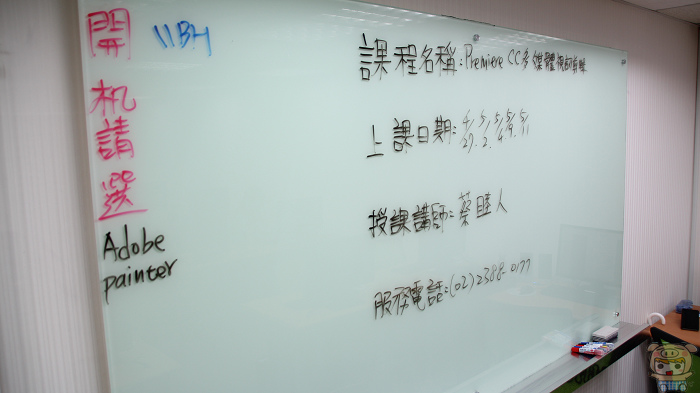 開机請選
Adobe
painter
11BH
課程名稱:Premiere CC多媒體視訊剪輯
上課日期:4/27. 5/2. 5/4 5/9. 5/11
授課講師:蔡睦人
服務電話:(02)2388-0177